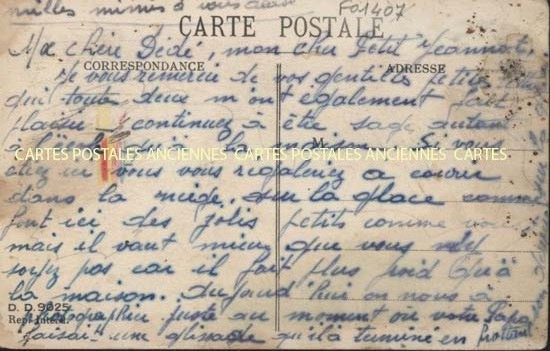 milles mimis à vous deux
F01407
CARTE POSTALE
Ma chère Dédé, mon cher petit Jeannot,
CORRESPONDANCE
ADRESSE
Je vous remercie de vos gentilles petites
qui toute deux m'ont également fait
plaisir continuez à être sage autant
CARTES POSTALES ANCIENNES CARTES POSTALES ANCIENNES CARTES
étiez ici vous vous régaleriez à courir
dans la neige, sur la glace comme
font ici des jolis petits comme vous
mais il vaut mieux que vous n'y
soyez pas car il fait plus froid qu'à
la maison. Aujourd'hui on nous a
D. D. 9025
photographié juste au moment où votre papa
Rep. Interd.
faisait une glissade qu'il a terminé en